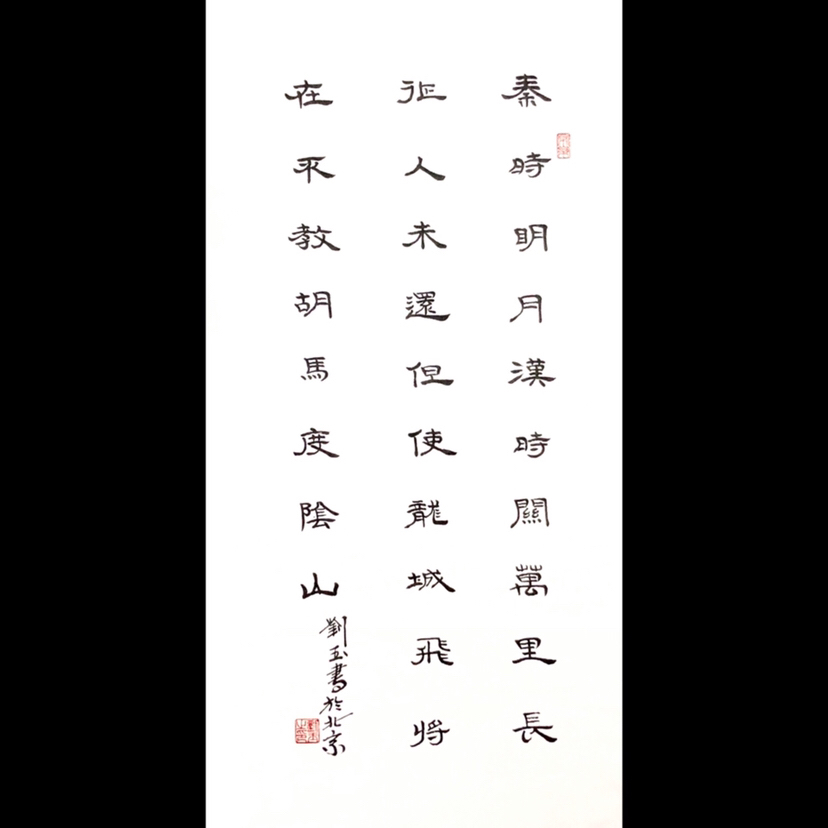 秦時明月漢時關萬里長
征人未還但使龍城飛将
在不教胡馬度陰山
劉玉書於北京